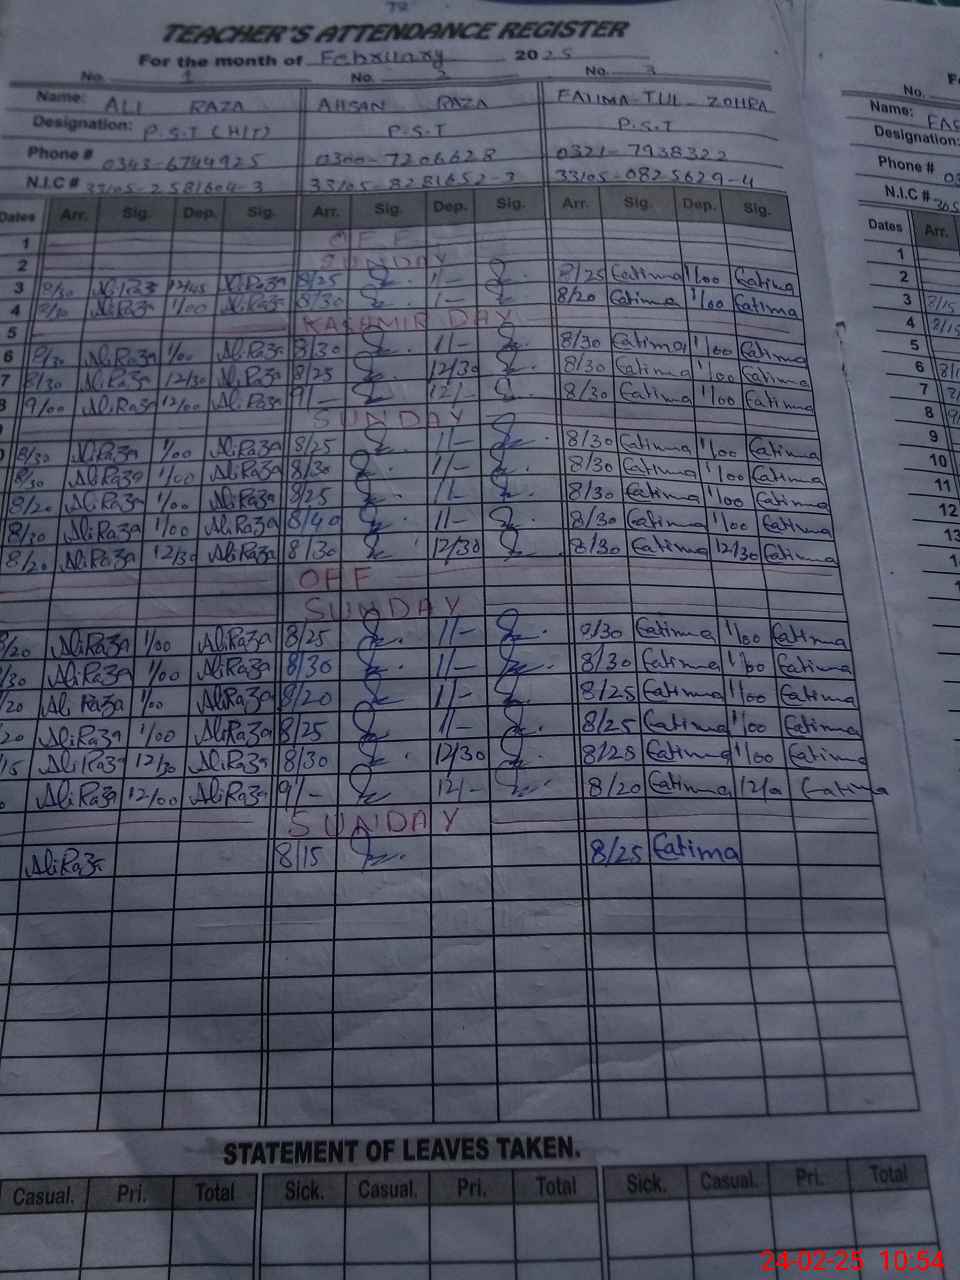 TEACHER'S ATTENDANCE REGISTER
For the month of February 2025
No. 1 No. 2 No. 3
Name: ALI RAZA AHSAN RAZA FATIMA-TUL-ZOHRA
Designation: P.S.T (H/T) P.S.T P.S.T
Phone # 0343-6744925 0300-7206628 0321-7938322
N.I.C # 33105-2581604-3 33105-8281652-3 33105-0825629-4
Dates Arr. Sig. Dep. Sig. Arr. Sig. Dep. Sig. Arr. Sig. Dep. Sig.
1 OFF
2 SUNDAY
3 8/30 AliRaza 12/45 AliRaza 8/25 1/- 8/25 Fatima 1/00 Fatima
4 AliRaza 1/00 AliRaza 8/30 1/- 8/20 Fatima 1/00 Fatima
5 KASHMIR DAY
6 8/30 AliRaza 1/00 AliRaza 8/30 1/- 8/30 Fatima 1/00 Fatima
7 8/30 AliRaza 12/30 AliRaza 8/25 12/30 8/30 Fatima 1/00 Fatima
8 9/00 AliRaza 12/00 AliRaza 9/- 12/- 8/30 Fatima 1/00 Fatima
SUNDAY
8/30 AliRaza 1/00 AliRaza 8/25 1/- 8/30 Fatima 1/00 Fatima
8/30 AliRaza 1/00 AliRaza 8/30 1/- 8/30 Fatima 1/00 Fatima
8/20 AliRaza 1/00 AliRaza 8/25 1/- 8/30 Fatima 1/00 Fatima
8/30 AliRaza 1/00 AliRaza 8/40 1/- 8/30 Fatima 1/00 Fatima
8/20 AliRaza 12/30 AliRaza 8/30 12/30 8/30 Fatima 12/30 Fatima
OFF
SUNDAY
/20 AliRaza 1/00 AliRaza 8/25 1/- 8/30 Fatima 1/00 Fatima
/30 AliRaza 1/00 AliRaza 8/30 1/- 8/30 Fatima 1/00 Fatima
/20 Ali Raza 1/00 AliRaza 8/20 1/- 8/25 Fatima 1/00 Fatima
20 AliRaza 1/00 AliRaza 8/25 1/- 8/25 Fatima 1/00 Fatima
15 AliRaza 12/30 AliRaza 8/30 12/30 8/25 Fatima 1/00 Fatima
AliRaza 12/00 AliRaza 9/- 12/- 8/20 Fatima Fatima
SUNDAY
AliRaza 8/15 8/25 Fatima
STATEMENT OF LEAVES TAKEN.
Casual. Pri. Total Sick. Casual. Pri. Total Sick. Casual. Pri. Total
No.
Name:
Designation:
Phone # 03
N.I.C #
Dates Arr.
1
2
3 8/15
4 8/15
5
6
7
8
9
10
11
12
13
24-02-25 10:54